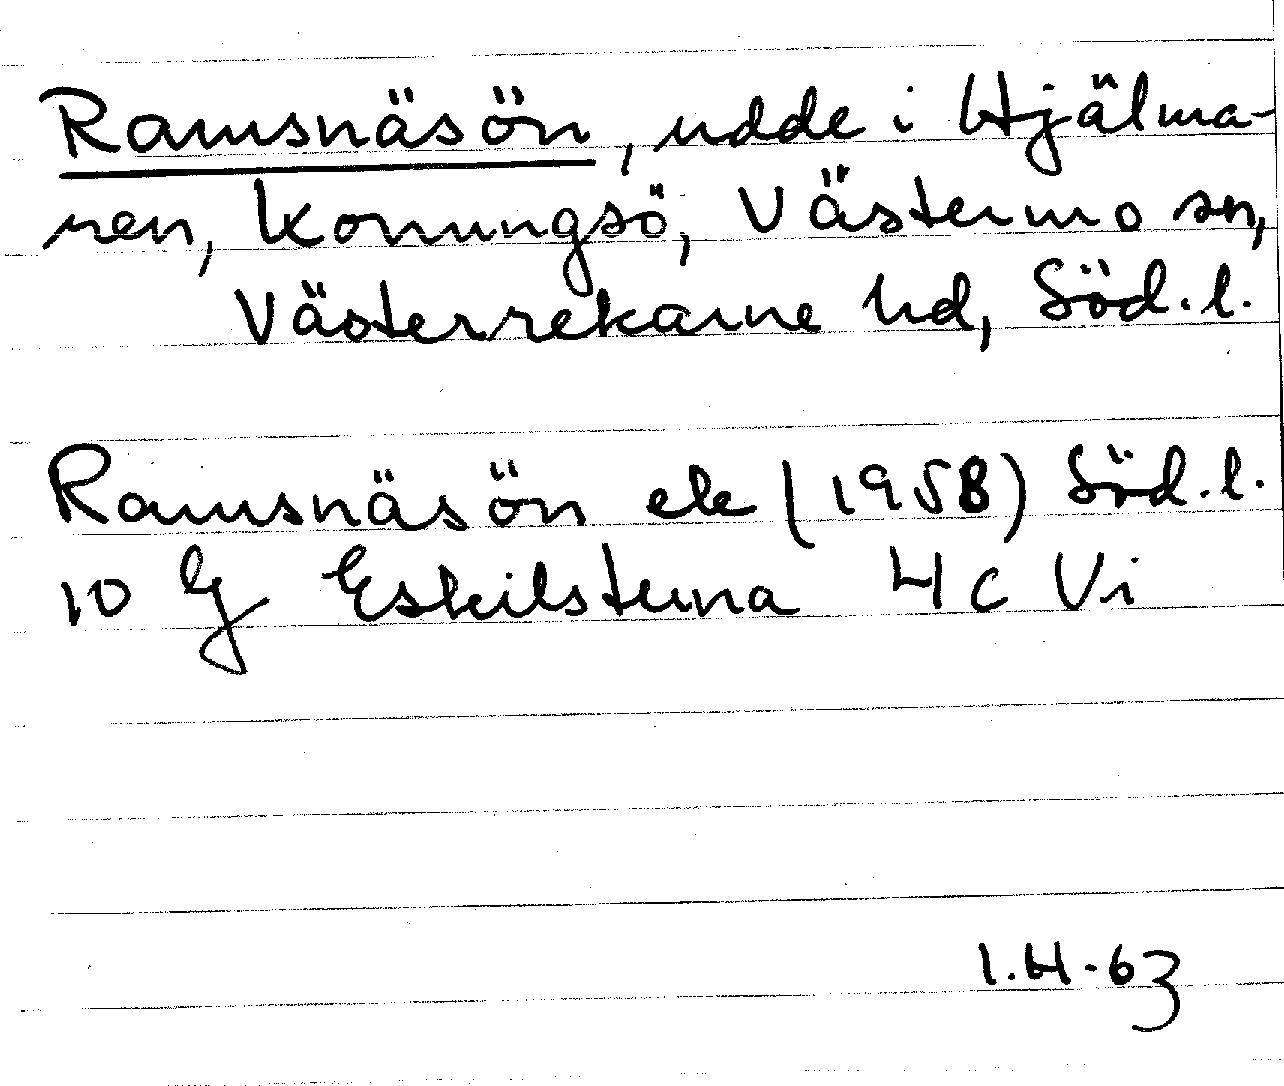 Ramsnäsön, udde i Hjälma-
ren, Konungsö, Västermo sn,
Västerrekarne hd, Söd.l.
Ramsnäsön ek (1958) Söd.l.
10 G Eskilstuna 4c Vi
I.H-63